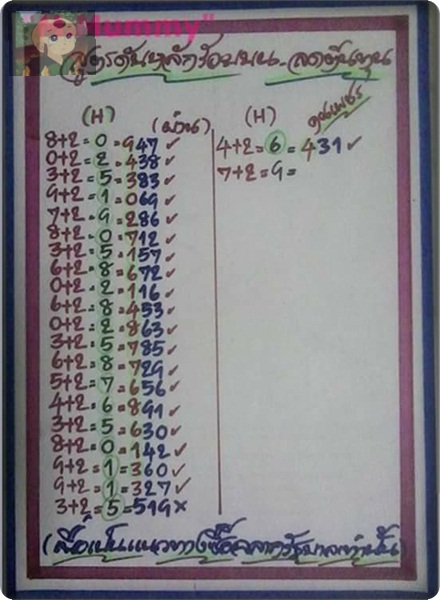 สูตรดับหลักร้อยบน-ลดต้นทุน
(H) (ผ่าน)
8+2=0=947✓
0+2=2=438✓
3+2=5=383✓
9+2=1=069✓
7+2=9=286✓
8+2=0=712✓
3+2=5=157✓
6+2=8=672✓
0+2=2=116✓
6+2=8=453✓
0+2=2=863✓
3+2=5=785✓
6+2=8=729✓
5+2=7=656✓
4+2=6=891✓
3+2=5=630✓
8+2=0=142✓
9+2=1=360✓
9+2=1=327✓
3+2=5=519×
(H)
4+2=6=431✓
7+2=9=
(เพื่อเป็นแนวทางซื้อสลากรัฐบาลเท่านั้น)